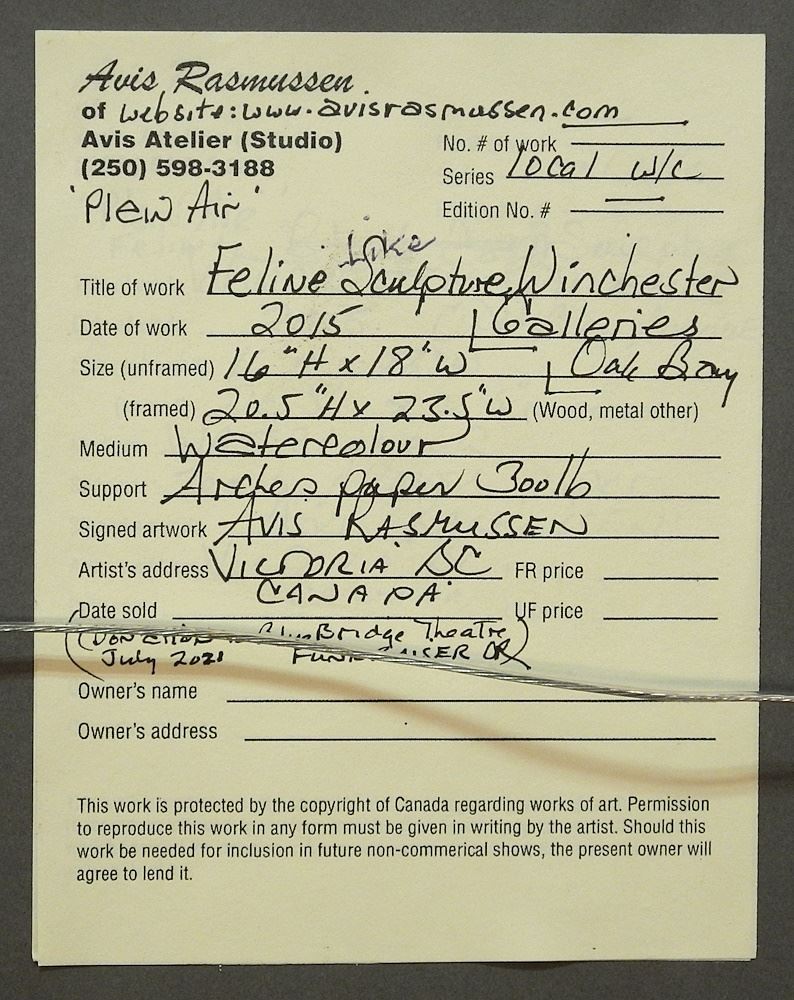 Avis Rasmussen
of website: www.avisrasmussen.com
Avis Atelier (Studio)
(250) 598-3188
'Plein Air'
No. # of work —
Series local w/c
Edition No. # —
Like
Title of work Feline Sculpture, Winchester
Date of work 2015 Galleries
Size (unframed) 16"H x 18"W Oak Bay
(framed) 20.5"H x 23.5"W (Wood, metal other)
Medium Watercolour
Support Arches paper 300lb
Signed artwork AVIS RASMUSSEN
Artist's address VICTORIA BC FR price
CANADA
Date sold UF price
(Donation Blue Bridge Theatre)
July 2021 FUNDRAISER
Owner's name
Owner's address
This work is protected by the copyright of Canada regarding works of art. Permission
to reproduce this work in any form must be given in writing by the artist. Should this
work be needed for inclusion in future non-commerical shows, the present owner will
agree to lend it.